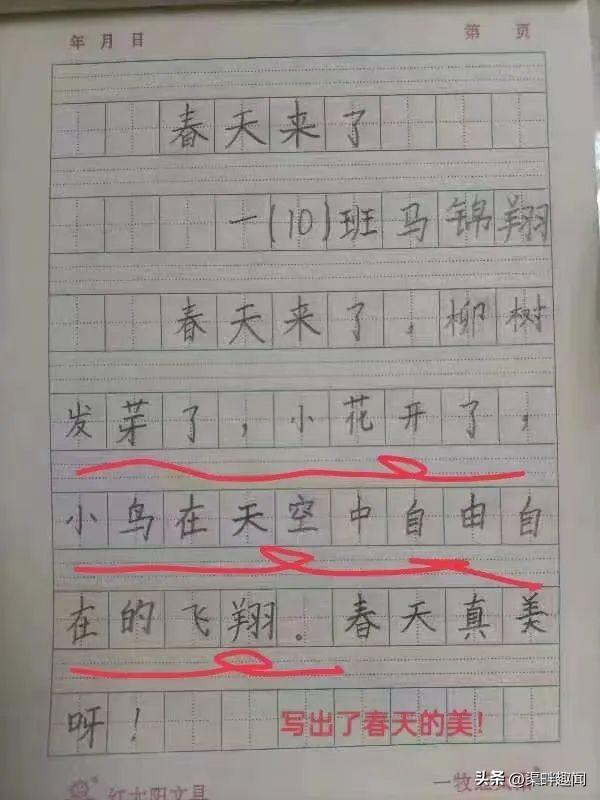 年 月 日 第 页
春天来了
一(10)班马锦翔
春天来了,柳树
发芽了,小花开了,
小鸟在天空中自由自
在的飞翔。春天真美
呀!
写出了春天的美!
红太阳文具
头条 @渠畔趣闻